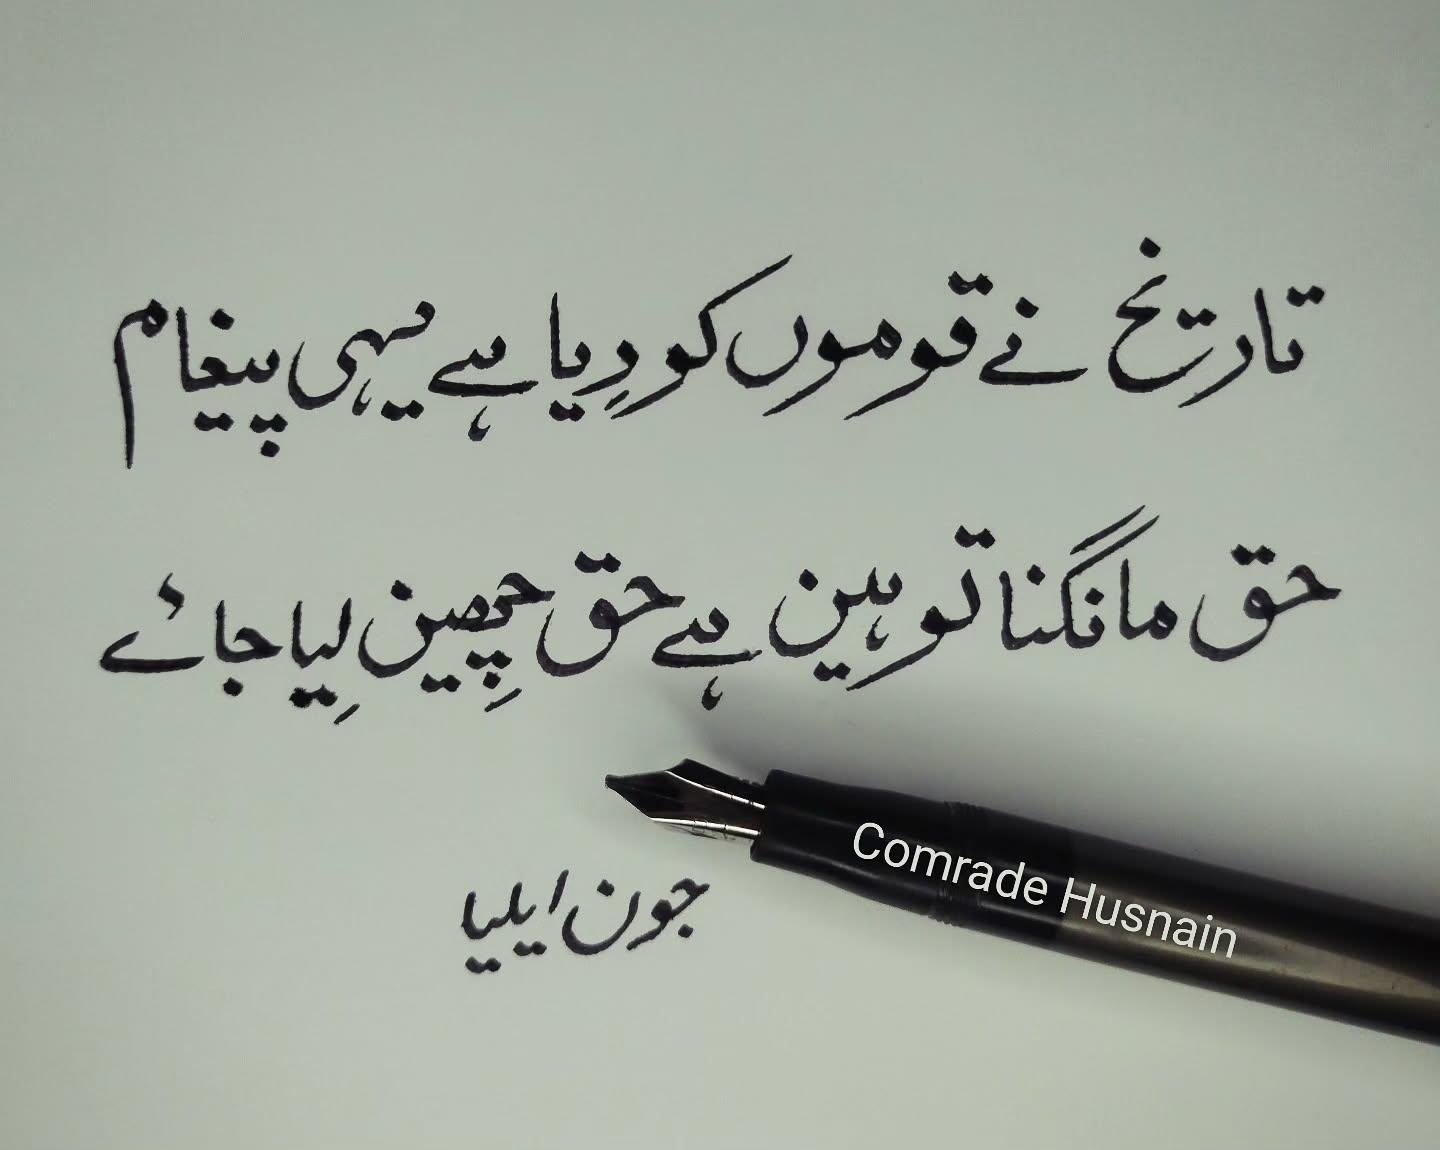 تاریخ نے قوموں کو دِیا ہے یہی پیغام
حق مانگنا توہین ہے حق چھِین لِیا جائے
جون ایلیا
Comrade Husnain